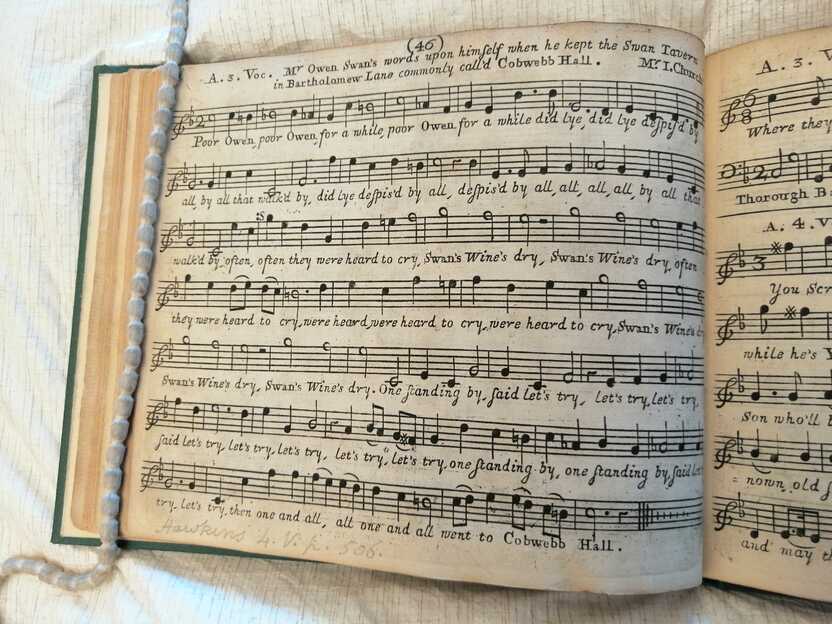 (46)
A. 3. Voc. Mr Owen Swan's words upon himself when he kept the Swan Tavern
in Bartholomew Lane commonly call'd Cobwebb Hall. Mr I. Church
Poor Owen, poor Owen, for a while, poor Owen, for a while did lye, did lye deſpis'd by
all, by all that walk'd by, did lye deſpis'd by all, deſpis'd by all, all, all, all, by all that
:S:
walk'd by, often, often they were heard to cry, Swan's Wine's dry, Swan's Wine's dry, often
they were heard to cry, were heard, were heard to cry, were heard to cry, Swan's Wine's dry
Swan's Wine's dry, Swan's Wine's dry. One ſtanding by, ſaid let's try, let's try, let's try,
ſaid let's try, let's try, let's try, let's try, let's try, one ſtanding by, one ſtanding by, ſaid let's
try, let's try, then one and all, all one and all went to Cobwebb Hall.
Hawkins 4. V. p. 506.
A. 3. V
6
8
Where they
Thorough Ba
A. 4. V
3
You Scr
while he's Y
Son who'll b
= nown old ſ
and may th